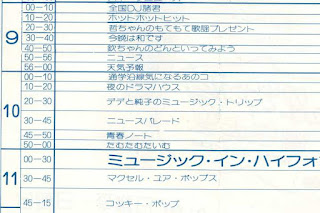 00-10 全国DJ勝君
10-20 ホットホットヒット
9
20-30 哲ちゃんのもてもて歌謡プレゼント
30-40 今晩は和です
40-50 欽ちゃんのどんといってみよう
50-56 ニュース
56-00 天気予報
00-10 通学沿線気になるあのコ
10-20 夜のドラマハウス
10
20-30 デデと純子のミュージック・トリップ
30-45 ニュースパレード
45-50 青春ノート
50-00 たむたむたいむ
00-30 ミュージック・イン・ハイフォ
11
30-45 マクセル・ユア・ポップス
45-15 コッキー・ポップ